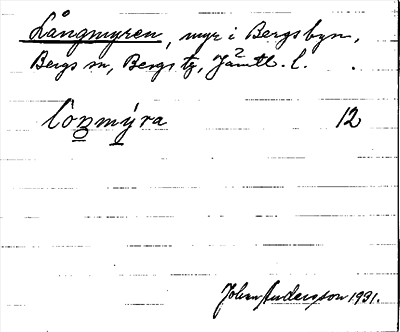 Långmyren, myr i Bergsbyn,
Bergs sn, Bergs tg, Jämtl. l.
lonmýra 12
Johan Andersson 1931.